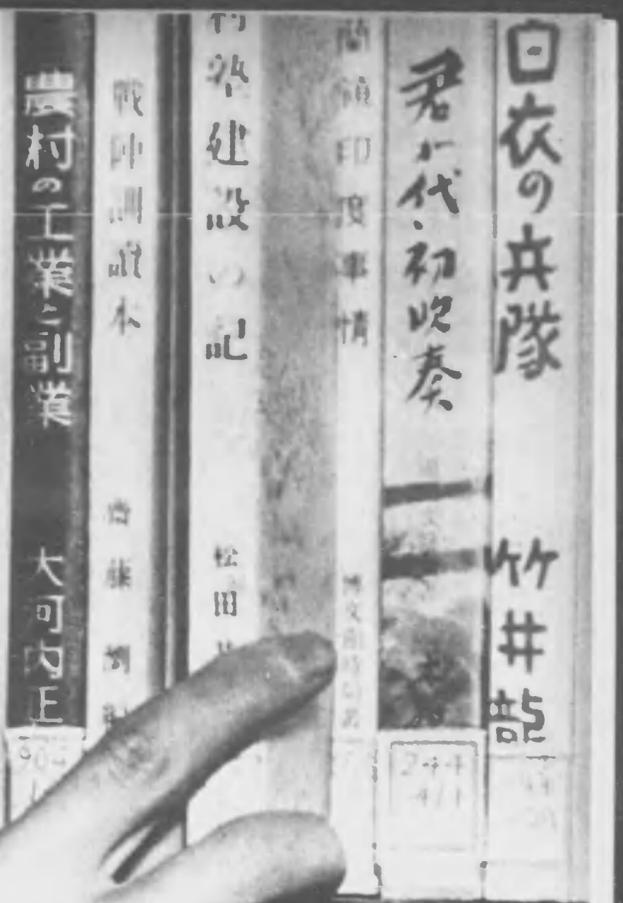 白衣の兵隊
竹井部
君か代・初吹奏
244
411
蘭領印度事情
村塾建設の記
松田
戰陣訓讀本
齋藤瀏
農村の工業と副業
大河内正